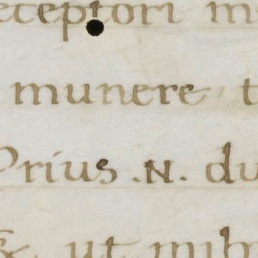 ceptori m
munere t
Prius .N. du
& ut mihi